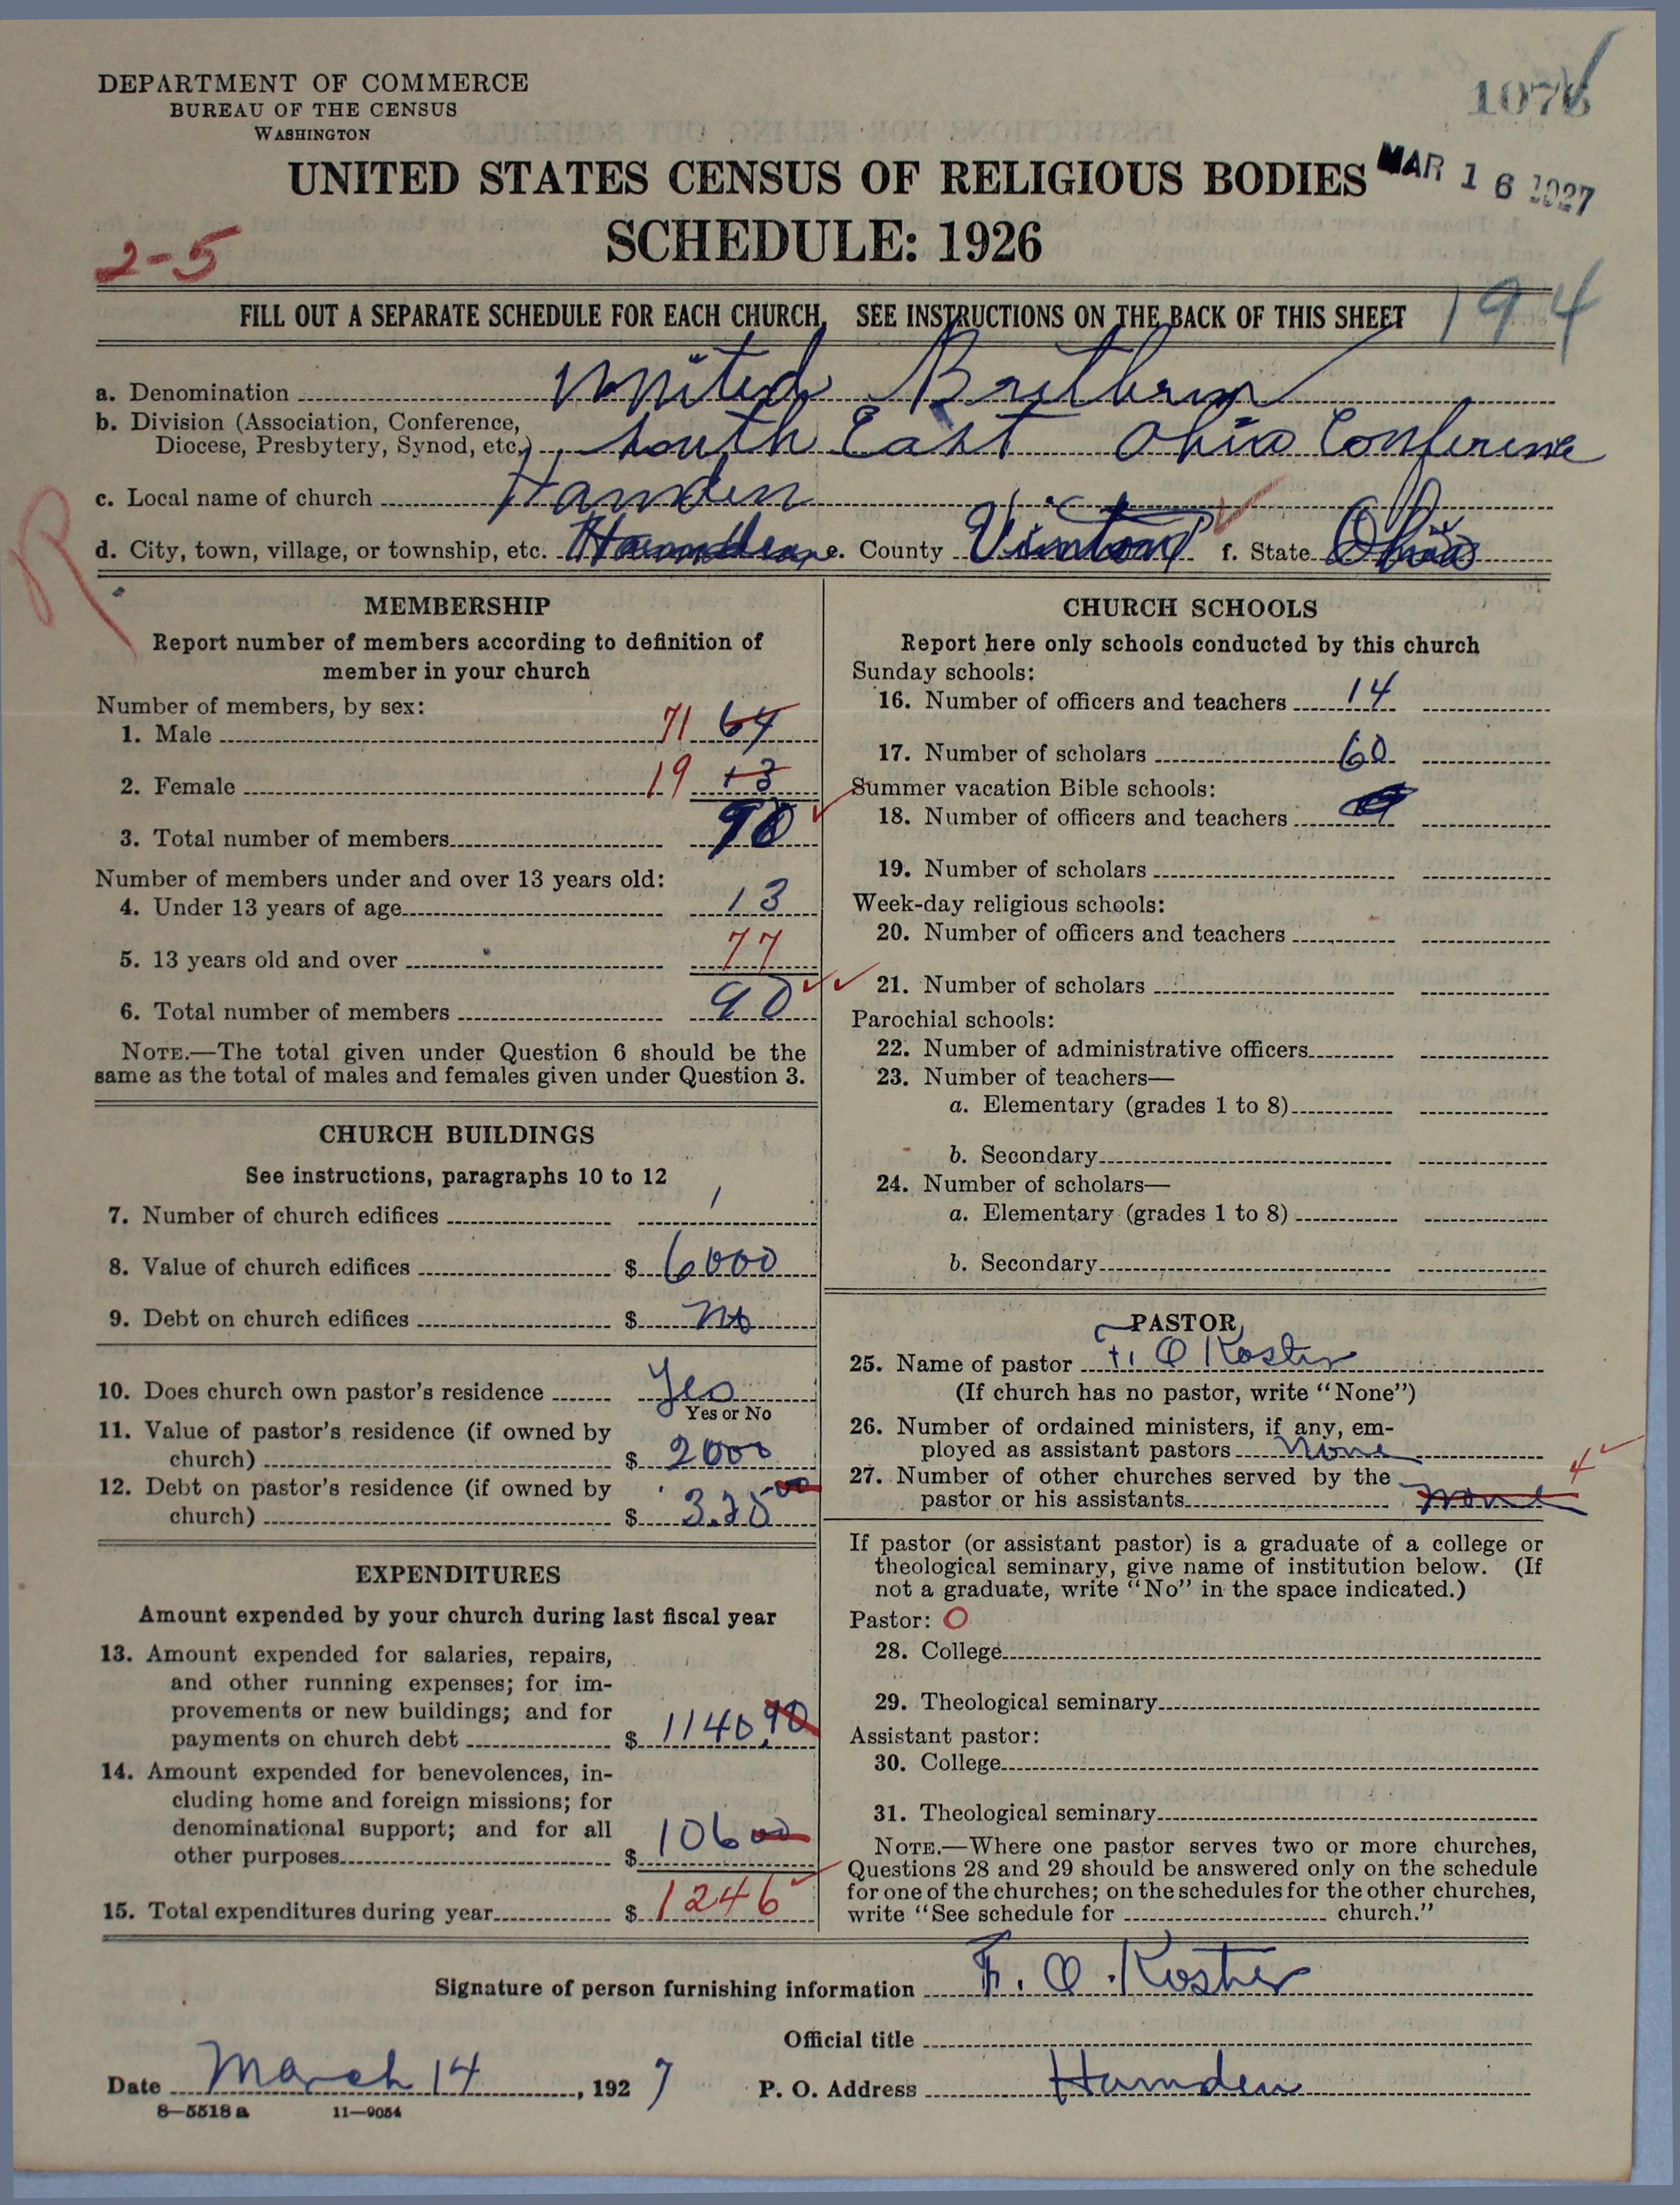 DEPARTMENT OF COMMERCE
BUREAU OF THE CENSUS
WASHINGTON
107
UNITED STATES CENSUS OF RELIGIOUS BODIES
MAR 16 1927
SCHEDULE: 1926
2-5
FILL OUT A SEPARATE SCHEDULE FOR EACH CHURCH. SEE INSTRUCTIONS ON THE BACK OF THIS SHEET
194
a. Denomination United Brethren
b. Division (Association, Conference,
Diocese, Presbytery, Synod, etc.) South East Ohio Conference
c. Local name of church Hamden
d. City, town, village, or township, etc. Hamden e. County Vinton f. State Ohio
R
MEMBERSHIP
Report number of members according to definition of
member in your church
Number of members, by sex:
1. Male 71 64
2. Female 19 13
3. Total number of members 90
Number of members under and over 13 years old:
4. Under 13 years of age 13
5. 13 years old and over 77
6. Total number of members 90
NOTE.—The total given under Question 6 should be the
same as the total of males and females given under Question 3.
CHURCH BUILDINGS
See instructions, paragraphs 10 to 12
7. Number of church edifices 1
8. Value of church edifices $ 6000
9. Debt on church edifices $ no
10. Does church own pastor's residence Yes
Yes or No
11. Value of pastor's residence (if owned by
church) $ 2000
12. Debt on pastor's residence (if owned by
church) $ 325 00
EXPENDITURES
Amount expended by your church during last fiscal year
13. Amount expended for salaries, repairs,
and other running expenses; for im-
provements or new buildings; and for
payments on church debt $ 1140.90
14. Amount expended for benevolences, in-
cluding home and foreign missions; for
denominational support; and for all
other purposes $ 106 00
15. Total expenditures during year $ 1246
CHURCH SCHOOLS
Report here only schools conducted by this church
Sunday schools:
16. Number of officers and teachers 14
17. Number of scholars 60
Summer vacation Bible schools:
18. Number of officers and teachers
19. Number of scholars
Week-day religious schools:
20. Number of officers and teachers
21. Number of scholars
Parochial schools:
22. Number of administrative officers
23. Number of teachers—
a. Elementary (grades 1 to 8)
b. Secondary
24. Number of scholars—
a. Elementary (grades 1 to 8)
b. Secondary
PASTOR
25. Name of pastor F. O Koster
(If church has no pastor, write "None")
26. Number of ordained ministers, if any, em-
ployed as assistant pastors None
27. Number of other churches served by the 4
pastor or his assistants none
If pastor (or assistant pastor) is a graduate of a college or
theological seminary, give name of institution below. (If
not a graduate, write "No" in the space indicated.)
Pastor: O
28. College
29. Theological seminary
Assistant pastor:
30. College
31. Theological seminary
NOTE.—Where one pastor serves two or more churches,
Questions 28 and 29 should be answered only on the schedule
for one of the churches; on the schedules for the other churches,
write "See schedule for church."
Signature of person furnishing information F. O. Koster
Official title
Date March 14, 1927 P. O. Address Hamden
8—5518a 11—9054